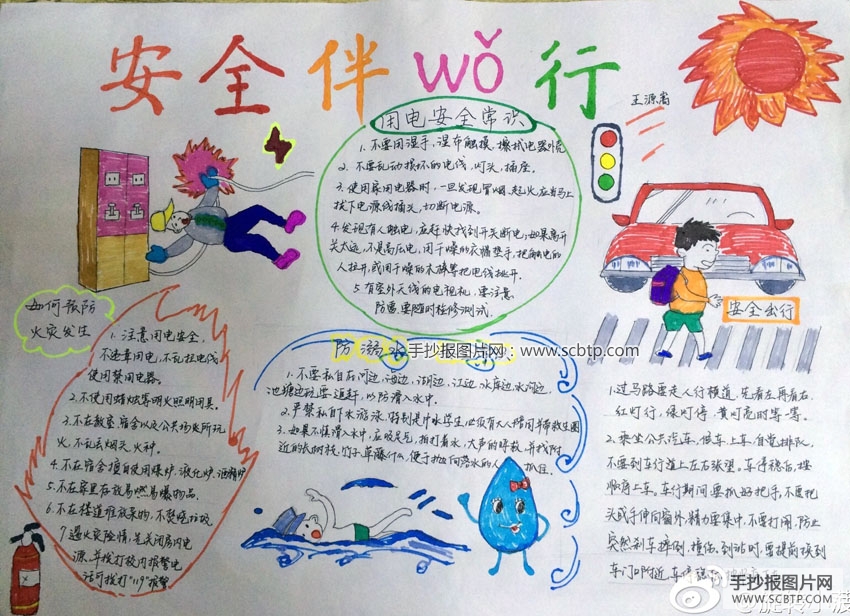 安全伴wǒ行
用电安全常识
1.不要用湿手,湿布触摸,擦拭电器外壳
2.不要乱动损坏的电线,灯头,插座。
3.使用家用电器时,一旦发现冒烟、起火应当马上
拔下电源线插头,切断电源。
4.发现有人触电,应赶快找到开关断电;如果离开
关太远,不是高压电,用干燥的衣物垫手,把触电的
人拉开,或用干燥的木棒等把电线挑开.
5.有室外天线的电视机,要注意
防雷要随时检修测试.
如何预防
火灾发生
1.注意用电安全,
不违章用电,不乱拉电线
使用禁用电器。
2.不使用蜡烛等明火照明用具。
3.不在教室、宿舍以及公共场所玩
火,不乱丢烟头,火种。
4.不在宿舍擅自使用煤炉,液化炉,酒精炉
5.不在家里存放易燃易爆物品.
6.不在楼道堆放杂物,不焚烧垃圾
7.遇火灾险情,先关闭房内电
源,并拨打校内报警电
话可拨打"119"报警
防溺水
手抄报图片网:www.scbtp.com
1.不要私自在河边,海边,湖边,江边,水库边,水沟边,
池塘边玩耍,追赶,以防滑入水中.
2.严禁私自下水游泳,特别是中小学生必须有大人陪同并带救生圈
3.如果不慎滑入水中,应吸足气,拍打着水,大声的呼救,并找附
近的长树枝,竹子草藤什么,便于拉住向落水的人
安全出行
1.过马路要走人行横道,先看左再看右,
红灯行,绿灯停,黄灯亮时等一等。
2.乘坐公共汽车,候车上车,自觉排队,
不要到车行道上左右张望。车停稳后,按
顺序上车。车行期间要抓好把手,不要把
头或手伸向窗外,精力要集中,不要打闹,防止
突然刹车摔倒,撞伤。到站时,要提前换到
车门口附近,
手抄报图片网
WWW.SCBTP.COM